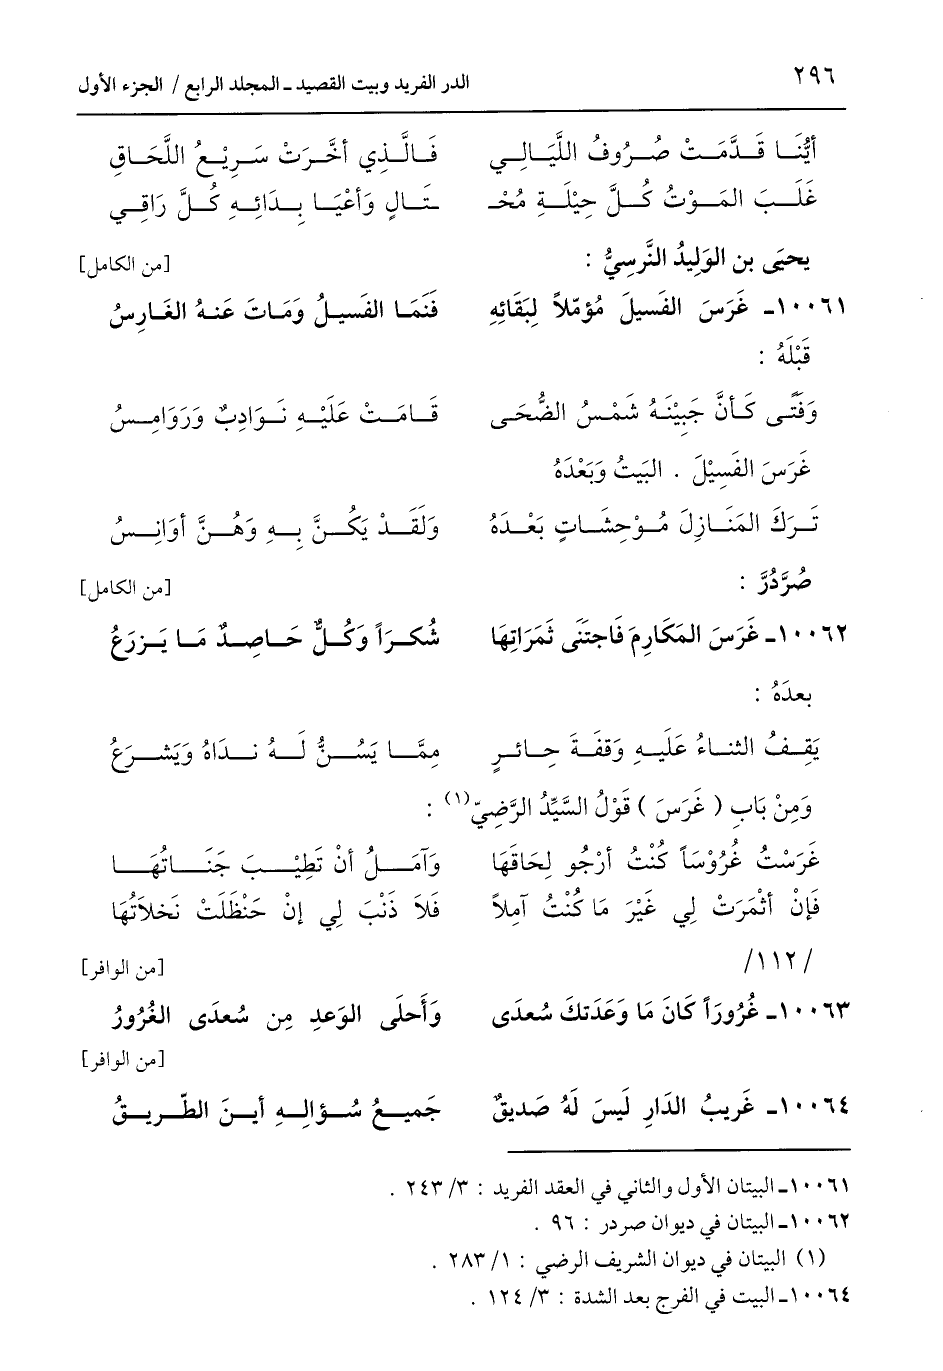 ٢٩٦ الدر الفريد وبيت القصيد ـ المجلد الرابع / الجزء الأول
أيُّنَا قَدَّمَتْ صُرُوفُ اللَّيَالِي فَالَّذِي أخَّرَتْ سَرِيْعُ اللَّحَاقِ
غَلَبَ المَوْتُ كُلَّ حِيْلَةِ مُحْـ ـتَالٍ وَأعْيَا بِدَائِهِ كُلَّ رَاقِي
يحيَى بن الوَلِيدُ النَّرسِيُّ : [من الكامل]
١٠٠٦١ـ غَرَسَ الفَسيلَ مُؤمّلاً لِبَقَائِهِ فَنَمَا الفَسيلُ وَمَاتَ عَنهُ الغَارِسُ
قَبْلَهُ :
وَفَتًى كَأنَّ جَبِيْنَهُ شَمْسُ الضُّحَى قَامَتْ عَلَيْهِ نَوَادِبٌ وَرَوَامِسُ
غَرَسَ الفَسِيْلَ . البَيتُ وَبَعْدَهُ
تَرَكَ المَنَازِلَ مُوْحِشَاتٍ بَعْدَهُ وَلَقَدْ يَكُنَّ بِهِ وَهُنَّ أوَانِسُ
صُرَّدُرَّ : [من الكامل]
١٠٠٦٢ـ غَرَسَ المَكَارِمَ فَاجتَنَى ثَمَرَاتِهَا شُكرَاً وَكُلٌّ حَاصِدٌ مَا يَزرَعُ
بعدَهُ :
يَقِفُ الثناءُ عَلَيهِ وَقفَةَ حِائرٍ مِمَّا يَسُنُّ لَهُ نداهُ وَيَشرَعُ
وَمِنْ بَابِ ( غَرَسَ ) قَوْلُ السَّيِّدُ الرَّضِيّ(١) :
غَرَسْتُ غُرُوْسَاً كُنْتُ أرْجُو لِحَاقَهَا وَآمَلُ أنْ تَطِيْبَ جَنَاتُهَا
فَإنْ أثْمَرَتْ لِي غَيْرَ مَا كُنْتُ آملاً فَلاَ ذَنْبَ لِي إنْ حَنْظَلَتْ نَخلاَتُهَا
/١١٢/ [من الوافر]
١٠٠٦٣ـ غُرُورَاً كَانَ مَا وَعَدَتكَ سُعدَى وَأَحلَى الوَعدِ مِن سُعدَى الغُرُورُ
[من الوافر]
١٠٠٦٤ـ غَرِيبُ الدَارِ لَيسَ لَهُ صَديقٌ جَميعُ سُؤالِهِ أينَ الطّريقُ
١٠٠٦١ـ البيتان الأول والثاني في العقد الفريد : ٣/ ٢٤٣ .
١٠٠٦٢ـ البيتان في ديوان صردر : ٩٦ .
(١) البيتان في ديوان الشريف الرضي : ١/ ٢٨٣ .
١٠٠٦٤ـ البيت في الفرج بعد الشدة : ٣/ ١٢٤ .